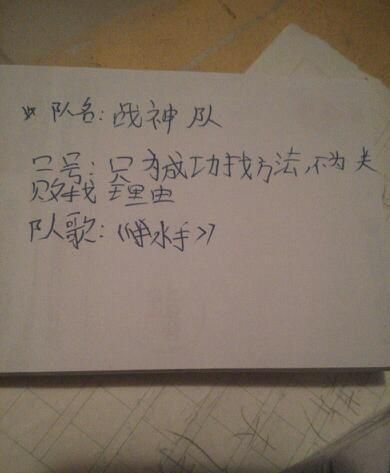 队名：战神队
口号：只为成功找方法，不为失
败找理由
队歌：《水手》